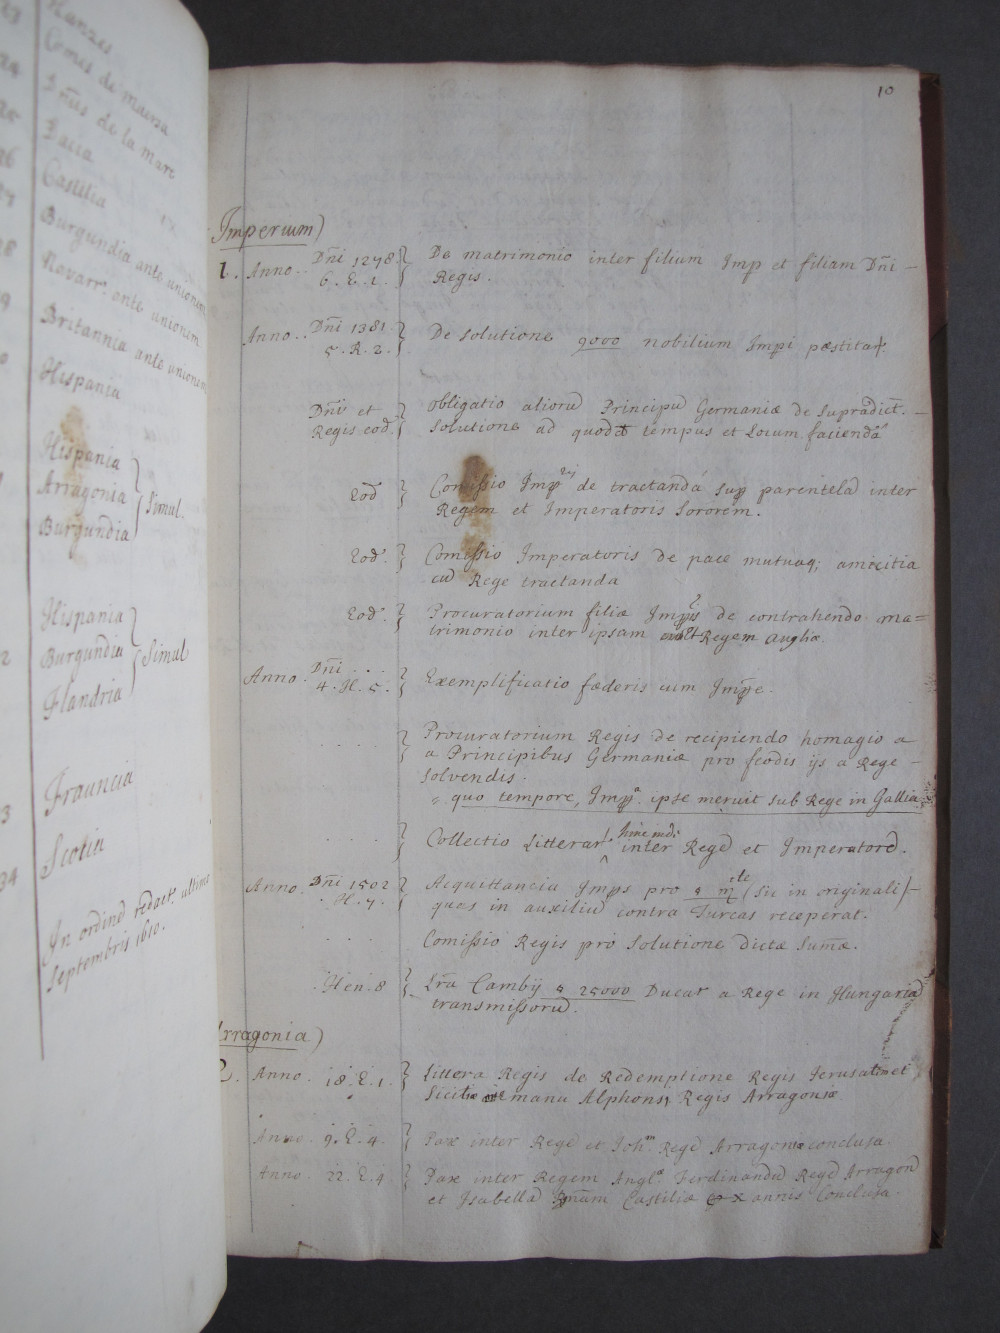 Hanzes
Comes de mauersa
Dn̄us de la marc
Dacia
Castilia
Burgundia ante unionem
Navarr. ante unionem
Britannia ante unionem
Hispania
Hispania
Arragonia
Burgundia
Simul.
Hispania
Burgundia
Flandria
Simul
Frauncia
34 Scotia
In ordinē redact. ultimo
Septembris 1610.
10
Imperium)
1. Anno.. Dn̄i 1278 De matrimonio inter filium Imp et filiam Dn̄i –
6. E. 1. Regis.
Anno.. Dn̄i 1381. De solutione 9000 nobilium Impi
5. R. 2.
Dn̄i et obligatio aliorū Principū Germaniæ de supradict. –
Regis eod. solutione ad quodā tempus et Locum faciendā
Eod Comissio Imp de tractandá sup parentelā inter
Regem et Imperatoris Sororem.
Eod. Comissio Imperatoris de pace mutuaq; amicitia
cū Rege tractanda
Eod. Procuratorium filiæ Impis de contrahendo ma=
trimonio inter ipsam et Regem Angliæ.
Anno. Dn̄i .... Exemplificatio fœderis cum Impe.
4. H. 5.
. . . . Procuratorium Regis de recipiendo homagio a
a Principibus Germaniæ pro feodis ijs a Rege –
solvendis.
quo tempore, Impr. ipse meruit sub Rege in Gallia
. . . Collectio Litterar hinc inde inter Regē et Imperatorē.
Anno. Dn̄i 1502 Acquittancia Imps pro (sic in originali)–
H. 7. quas in auxiliū contra Turcas receperat.
. . . Comissio Regis pro solutione dictæ sum̄æ.
. Hen. 8 Lr̄a Cambij 25000 Ducat a Rege in Hungariā
transmissorū.
Arragonia)
2. Anno. 18. E. 1. Littera Regis de Redemptione Regis Jerusalem et
Siciliæ manu Alphonsi Regis Arragoniæ
Anno. 9. E. 4. Pax inter Regē et Joh.m Regē Arragoniæ conclusa.
Anno. 22. E. 4. Pax inter Regem Angl. Ferdinandū Regē Arragon
et Isabellā Castiliæ x annis Conclusa.